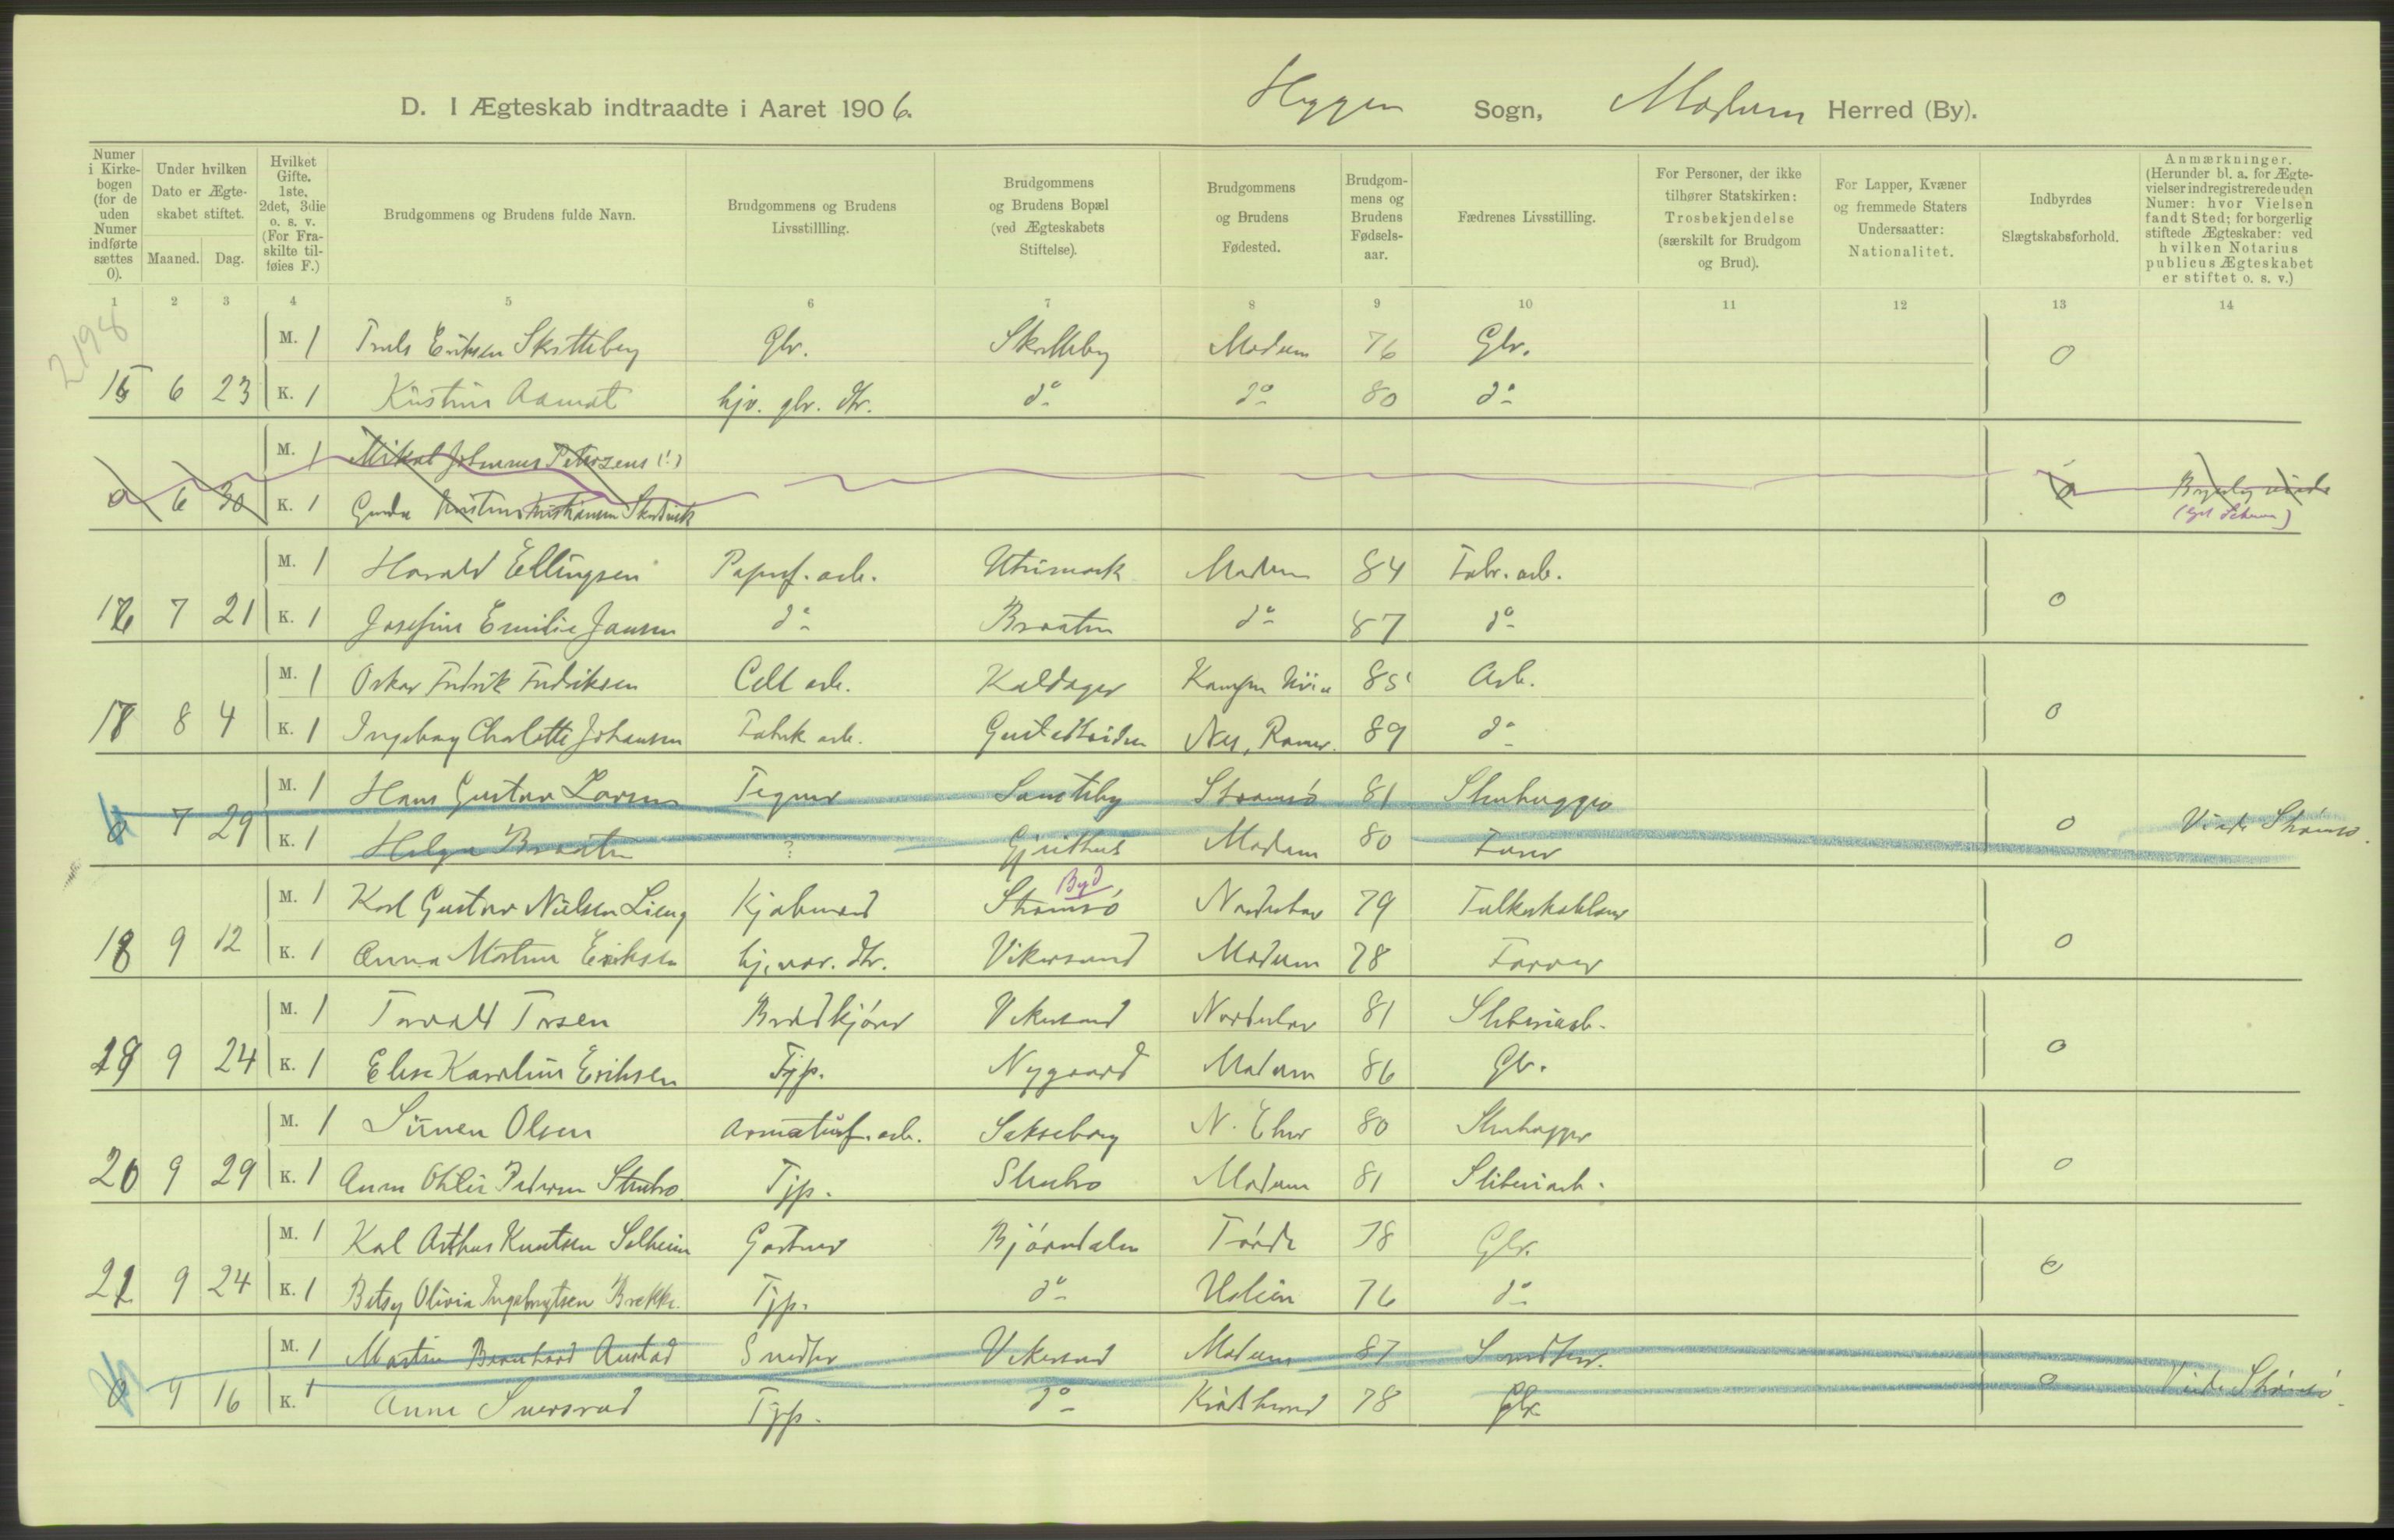 D. I Ægteskab indtraadte i Aaret 1906. Heggen Sogn, Modum Herred (By).
Numer i Kirke-bogen (for de uden Numer indførte sættes 0).
Under hvilken Dato er Ægte-skabet stiftet.
Maaned. Dag.
Hvilket Gifte. 1ste, 2det, 3die o. s. v. (For Fra-skilte til-føies F.)
Brudgommens og Brudens fulde Navn.
Brudgommens og Brudens Livsstillling.
Brudgommens og Brudens Bopæl (ved Ægteskabets Stiftelse).
Brudgommens og Brudens Fødested.
Brudgom-mens og Brudens Fødsels-aar.
Fædrenes Livsstilling.
For Personer, der ikke tilhører Statskirken: Trosbekjendelse (særskilt for Brudgom og Brud).
For Lapper, Kvæner og fremmede Staters Undersaatter: Nationalitet.
Indbyrdes Slægtskabsforhold.
Anmærkninger. (Herunder bl. a. for Ægte-vielser indregistrerede uden Numer: hvor Vielsen fandt Sted; for borgerlig stiftede Ægteskaber: ved hvilken Notarius publicus Ægteskabet er stiftet o. s. v.)
1 2 3 4 5 6 7 8 9 10 11 12 13 14
2198
M. 1 Truls Eriksen Skretteberg Gbr. Modum 76 Gbr. 0
15 6 23 K. 1 Kristine Aamot hjv. gbr. dtr. do do 80 do
M. 1 Mikal Johannes Peterzens (!)
0 6 30 K. 1 Gunda Kristine Kristiansen 0 Borgerlig viede
M. 1 Harald Ellingsen Papirf. arb. Modum 84 Fabr. arb.
16 7 21 K. 1 Josefine Emilie Jansen do Braaten do 87 do 0
M. 1 Oskar Fredrik Fredriksen Cell arb. Kaldager 85 Arb.
17 8 4 K. 1 Ingeborg Charlotte Johansen Fabrik arb. Nes, Romer. 89 do 0
M. 1 Hans Gustav Larsen Tegner Strømsø 81 Stenhugger
0 7 29 K. 1 Helga Braaten ? Gjeithus Modum 80 Farver 0 Viede Strømsø.
Byd
M. 1 Karl Gustav Nielsen Lieng Kjøbmand Strømsø Norderhov 79
18 9 12 K. 1 Anna Martine Eriksen hj. var. dtr. Vikersund Modum 78 Farver 0
M. 1 Torvald Torsen Brødkjører Vikersund Norderhov 81 Sliberiarb.
19 9 24 K. 1 Elise Karoline Eriksen Tjp. Nygaard Modum 86 Gbr. 0
M. 1 Simen Olsen Armaturf. arb. Sakseborg N. Eker 80 Stenhugger
20 9 29 K. 1 Anna Otilie Pedersen Stenbro Tjp. Stenbro Modum 81 Sliberiarb. 0
M. 1 Karl Arthur Knutsen Solheim Gartner Bjørndalen Førde 78 Gbr.
21 9 24 K. 1 Betsy Olivia Ingebrigtsen Brekke. Tjp. do 76 do 0
M. 1 Martin Bernhard Austad Snedker Vikersund Modum 87 Snedker.
0 9 16 K. 1 Anne Sversrud Tjp. do Krødsherred 78 Gbr. 0 Viede Strømsø.